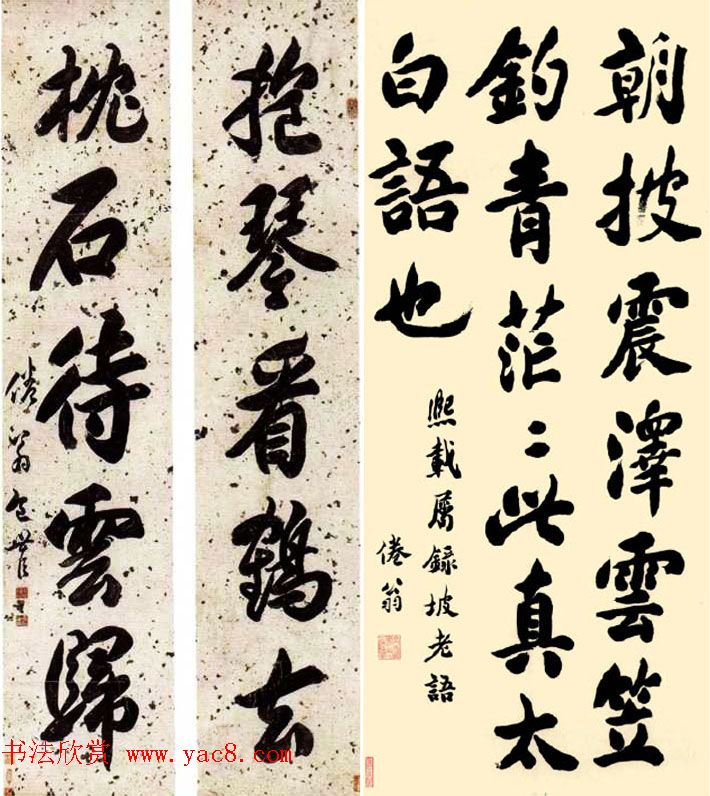 朝披震澤雲笠
釣青茫〻此真太
白語也
熙載屬錄坡老語
倦翁
抱琴看鶴去
枕石待雲歸
倦翁包世臣
书法欣赏 www.yac8.com